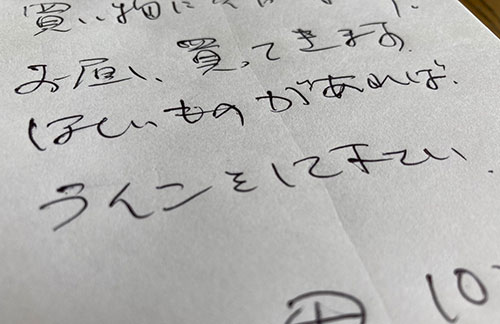 買い物に
お昼、買ってきます
ほしいものがあれば、
ラインをして下さい.